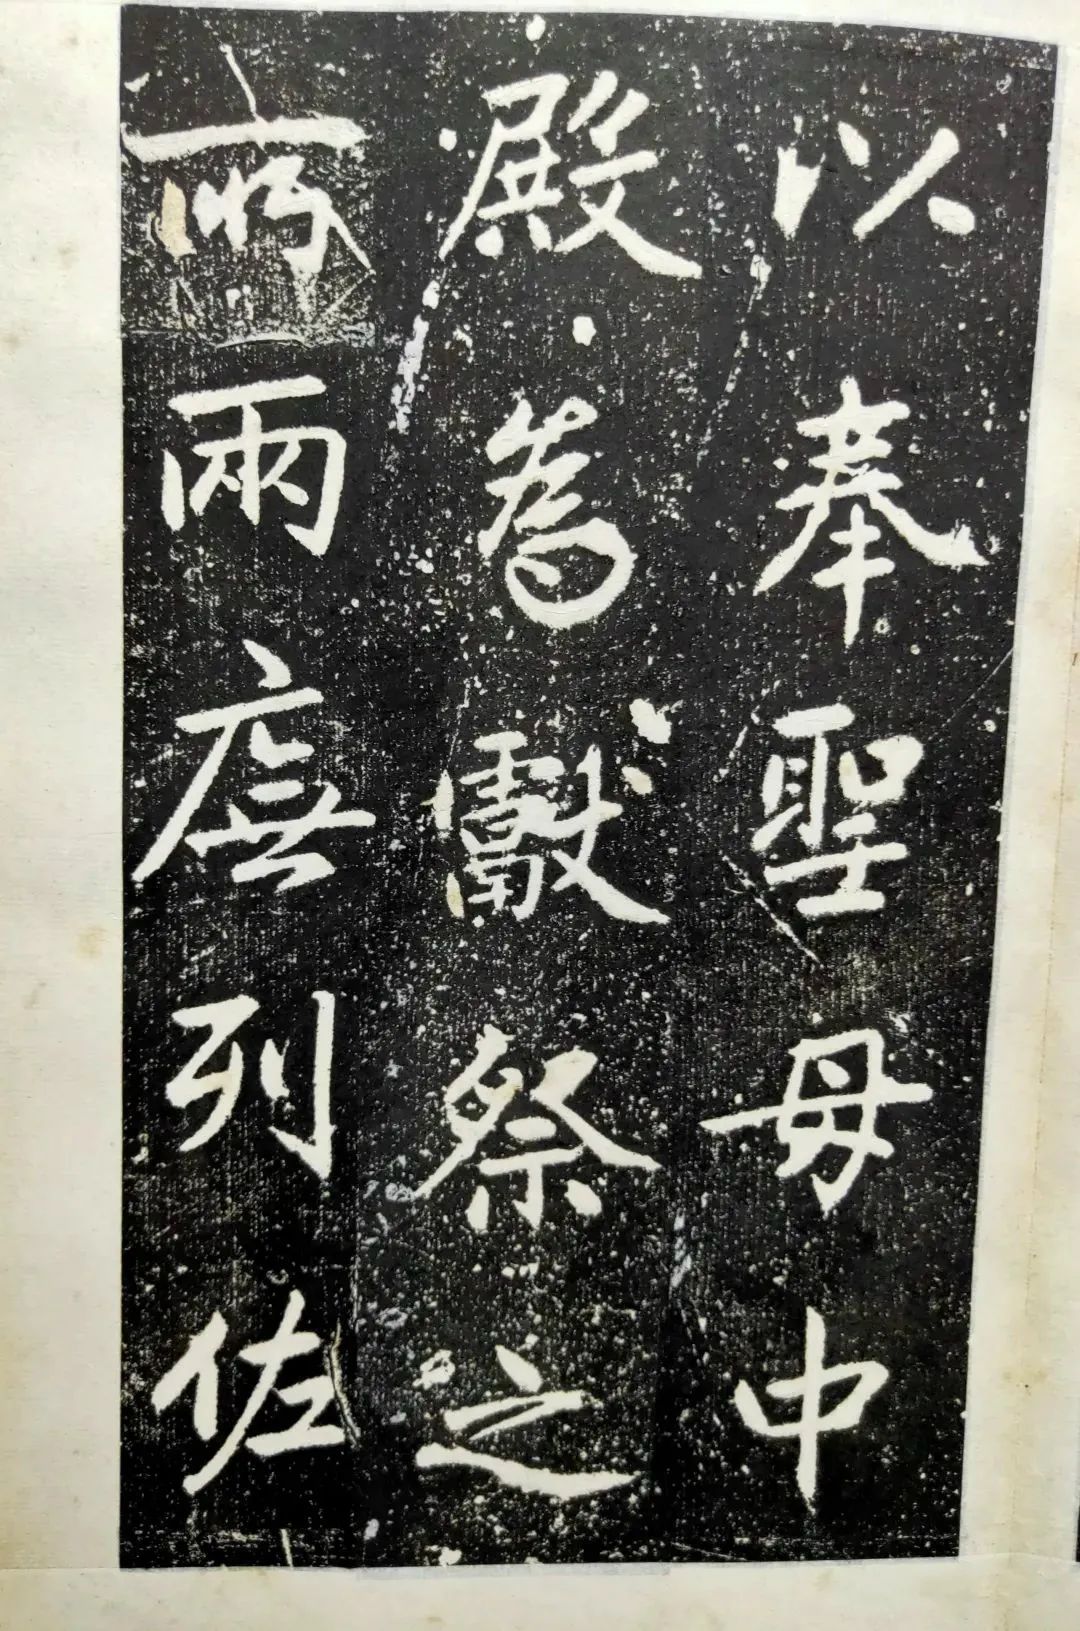 以奉聖母中
殿為獻祭之
所兩廡列佐